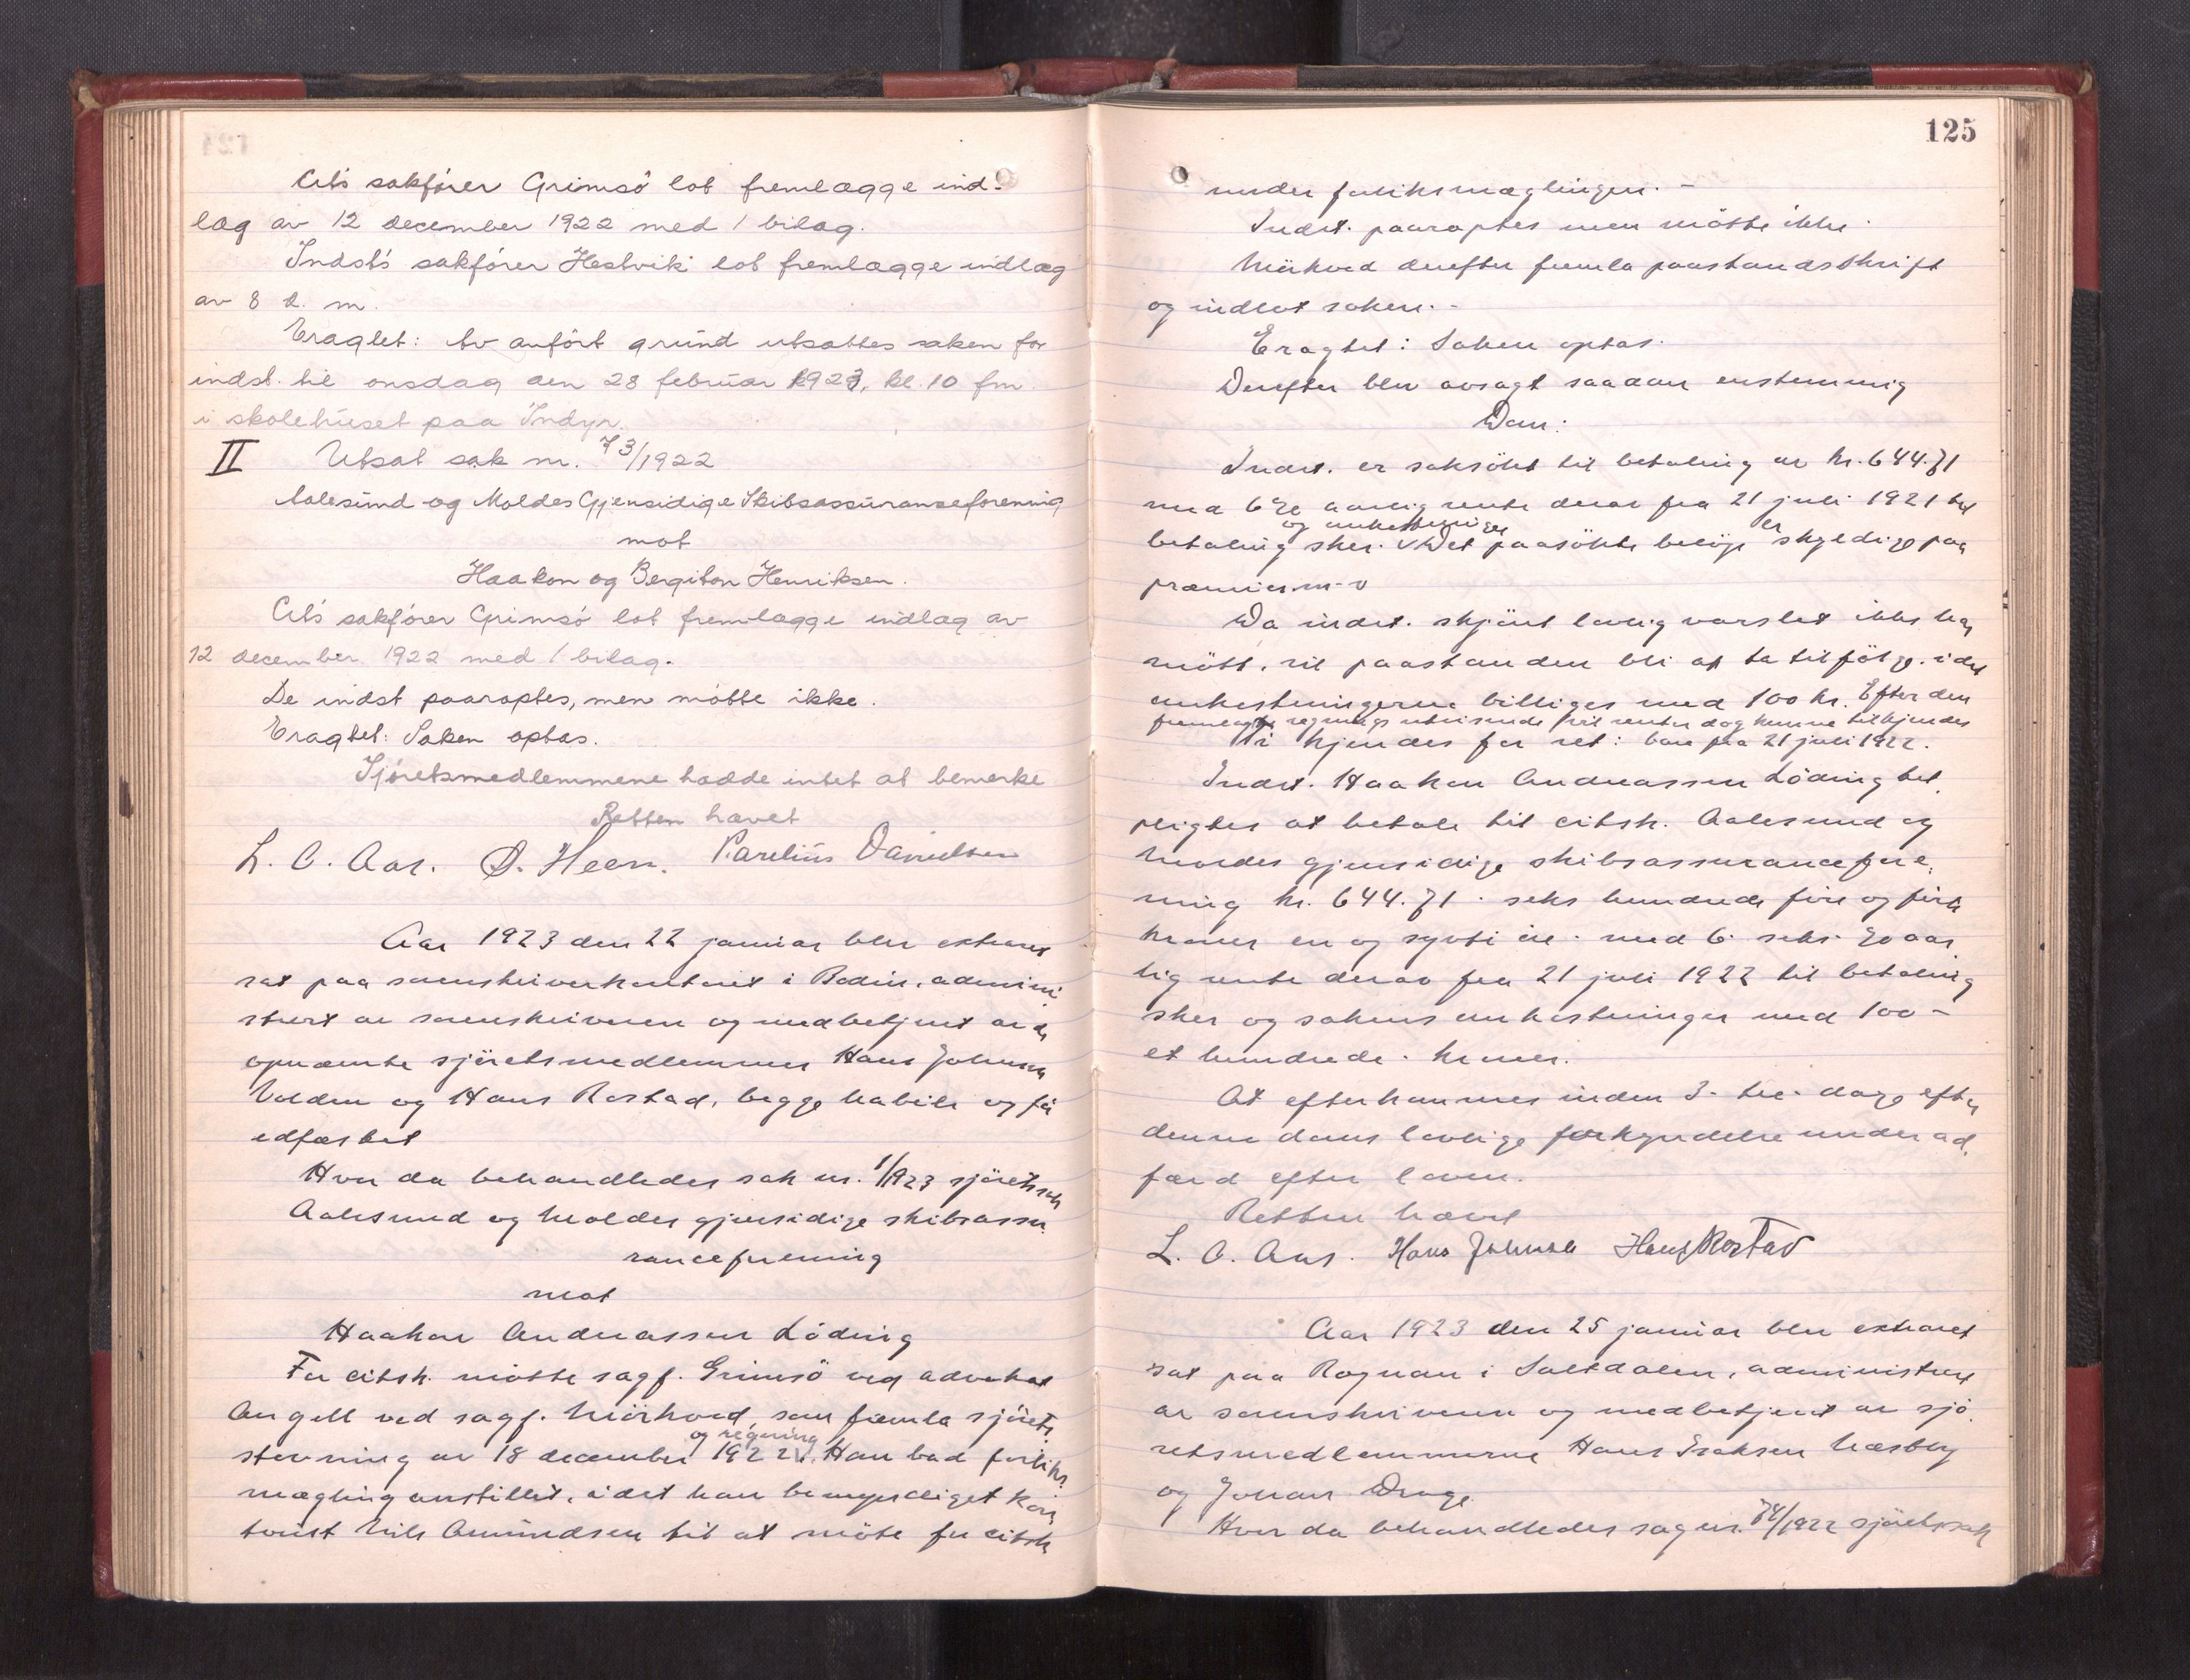 Cit's sakfører Grimsö lot fremlægge ind-
læg av 12 december 1922 med 1 bilag.
Indst's sakfører Hestvik lot fremlægge indlæg
av 8 d. m.
Eragtet: Av anført grund utsattes saken for
indst. til onsdag den 28 februar 1923, kl. 10 fm
i skolehuset paa Indyr.
II Utsat sak nr. 73/1922
Aalesund og Moldes Gjensidige Skibsassuranseforening
mot
Haakon og Bergiton Henriksen.
Cit's sakfører Grimsö lot fremlægge indlæg av
12 december 1922 med 1 bilag.
De indst paaroptes, men møtte ikke.
Eragtet: Saken optas.
Sjøretsmedlemmene hadde intet at bemerke
Retten hævet
L. O. Aas. O. Heen. Parelius Danielsen
Aar 1923 den 22 januar blev ekstraret
sat paa sorenskriverkontoret i Bodin, admini
strert av sorenskriveren og medbetjent av de
opnævnte sjöretsmedlemmer Hans Johnsen
Volden og Hans Rostad, begge habile og før
edfæstet
Hvor da behandledes sak nr. 1/1923 sjøretssak
Aalesund og Moldes gjensidige skibsassu
ranceforening
mot
Haakon Andreassen Löding
For citsk. mötte sagf. Grimsö ved advokat
Angell ved sagf. Mörkved, som fremla sjörets
og regning
stevning av 18 december 1922 v. Han bad forliks
mægling anstillet, idet han bemyndiget kon
torist Nils Amundsen til at möte for citsk
125
under forliksmæglingen. -
Indst. paaroptes men mötte ikke
Mörkved derefter fremla paastandsskrift
og indlot saken. -
Eragtet: Saken optas.
Derefter blev avsagt saadan enstemmig
Dom:
Indst. er saksökt til betaling av kr. 644.71
med 6 % aarlig rente derav fra 21 juli 1921 til
og omkostninger
betaling sker. v Det paasökte belöp er skyldige paa
præmier m. v
Da indst. skjönt lovlig varslet ikke har
mött, vil paastanden bli at ta tilfölge. idet
omkostningerne billiges med 100 kr. Efter den
fremlagte regnings utvisende vil renter dog kunne tilkjendes
Ti kjendes for ret: bare fra 21 juli 1922.
Indst. Haakon Andreassen Löding tilpligtes
pligtes at betale til citsk. Aalesund og
Moldes gjensidige skibsassuranceforе
ning kr. 644.71 - seks hundrede fire og firti
kroner en og sytti öre - med 6 - seks - % aar
lig rente derav fra 21 juli 1922 til betaling
sker og sakens omkostninger med 100 -
et hundrede - kroner.
At efterkommes inden 3 - tre - dage efter
denne doms lovlige forkyndelse under ad
færd efter loven.
Retten hævet
L. O. Aas. Hans Johnsen Hans Rostad
Aar 1923 den 25 januar blev ekstraret
sat paa Rognan i Saltdalen, administrert
av sorenskriveren og medbetjent av sjö
retsmedlemmerne Hans Isaksen Næsby
og Johan Drage
Hvor da behandledes sag nr. 74/1922 sjöretssak